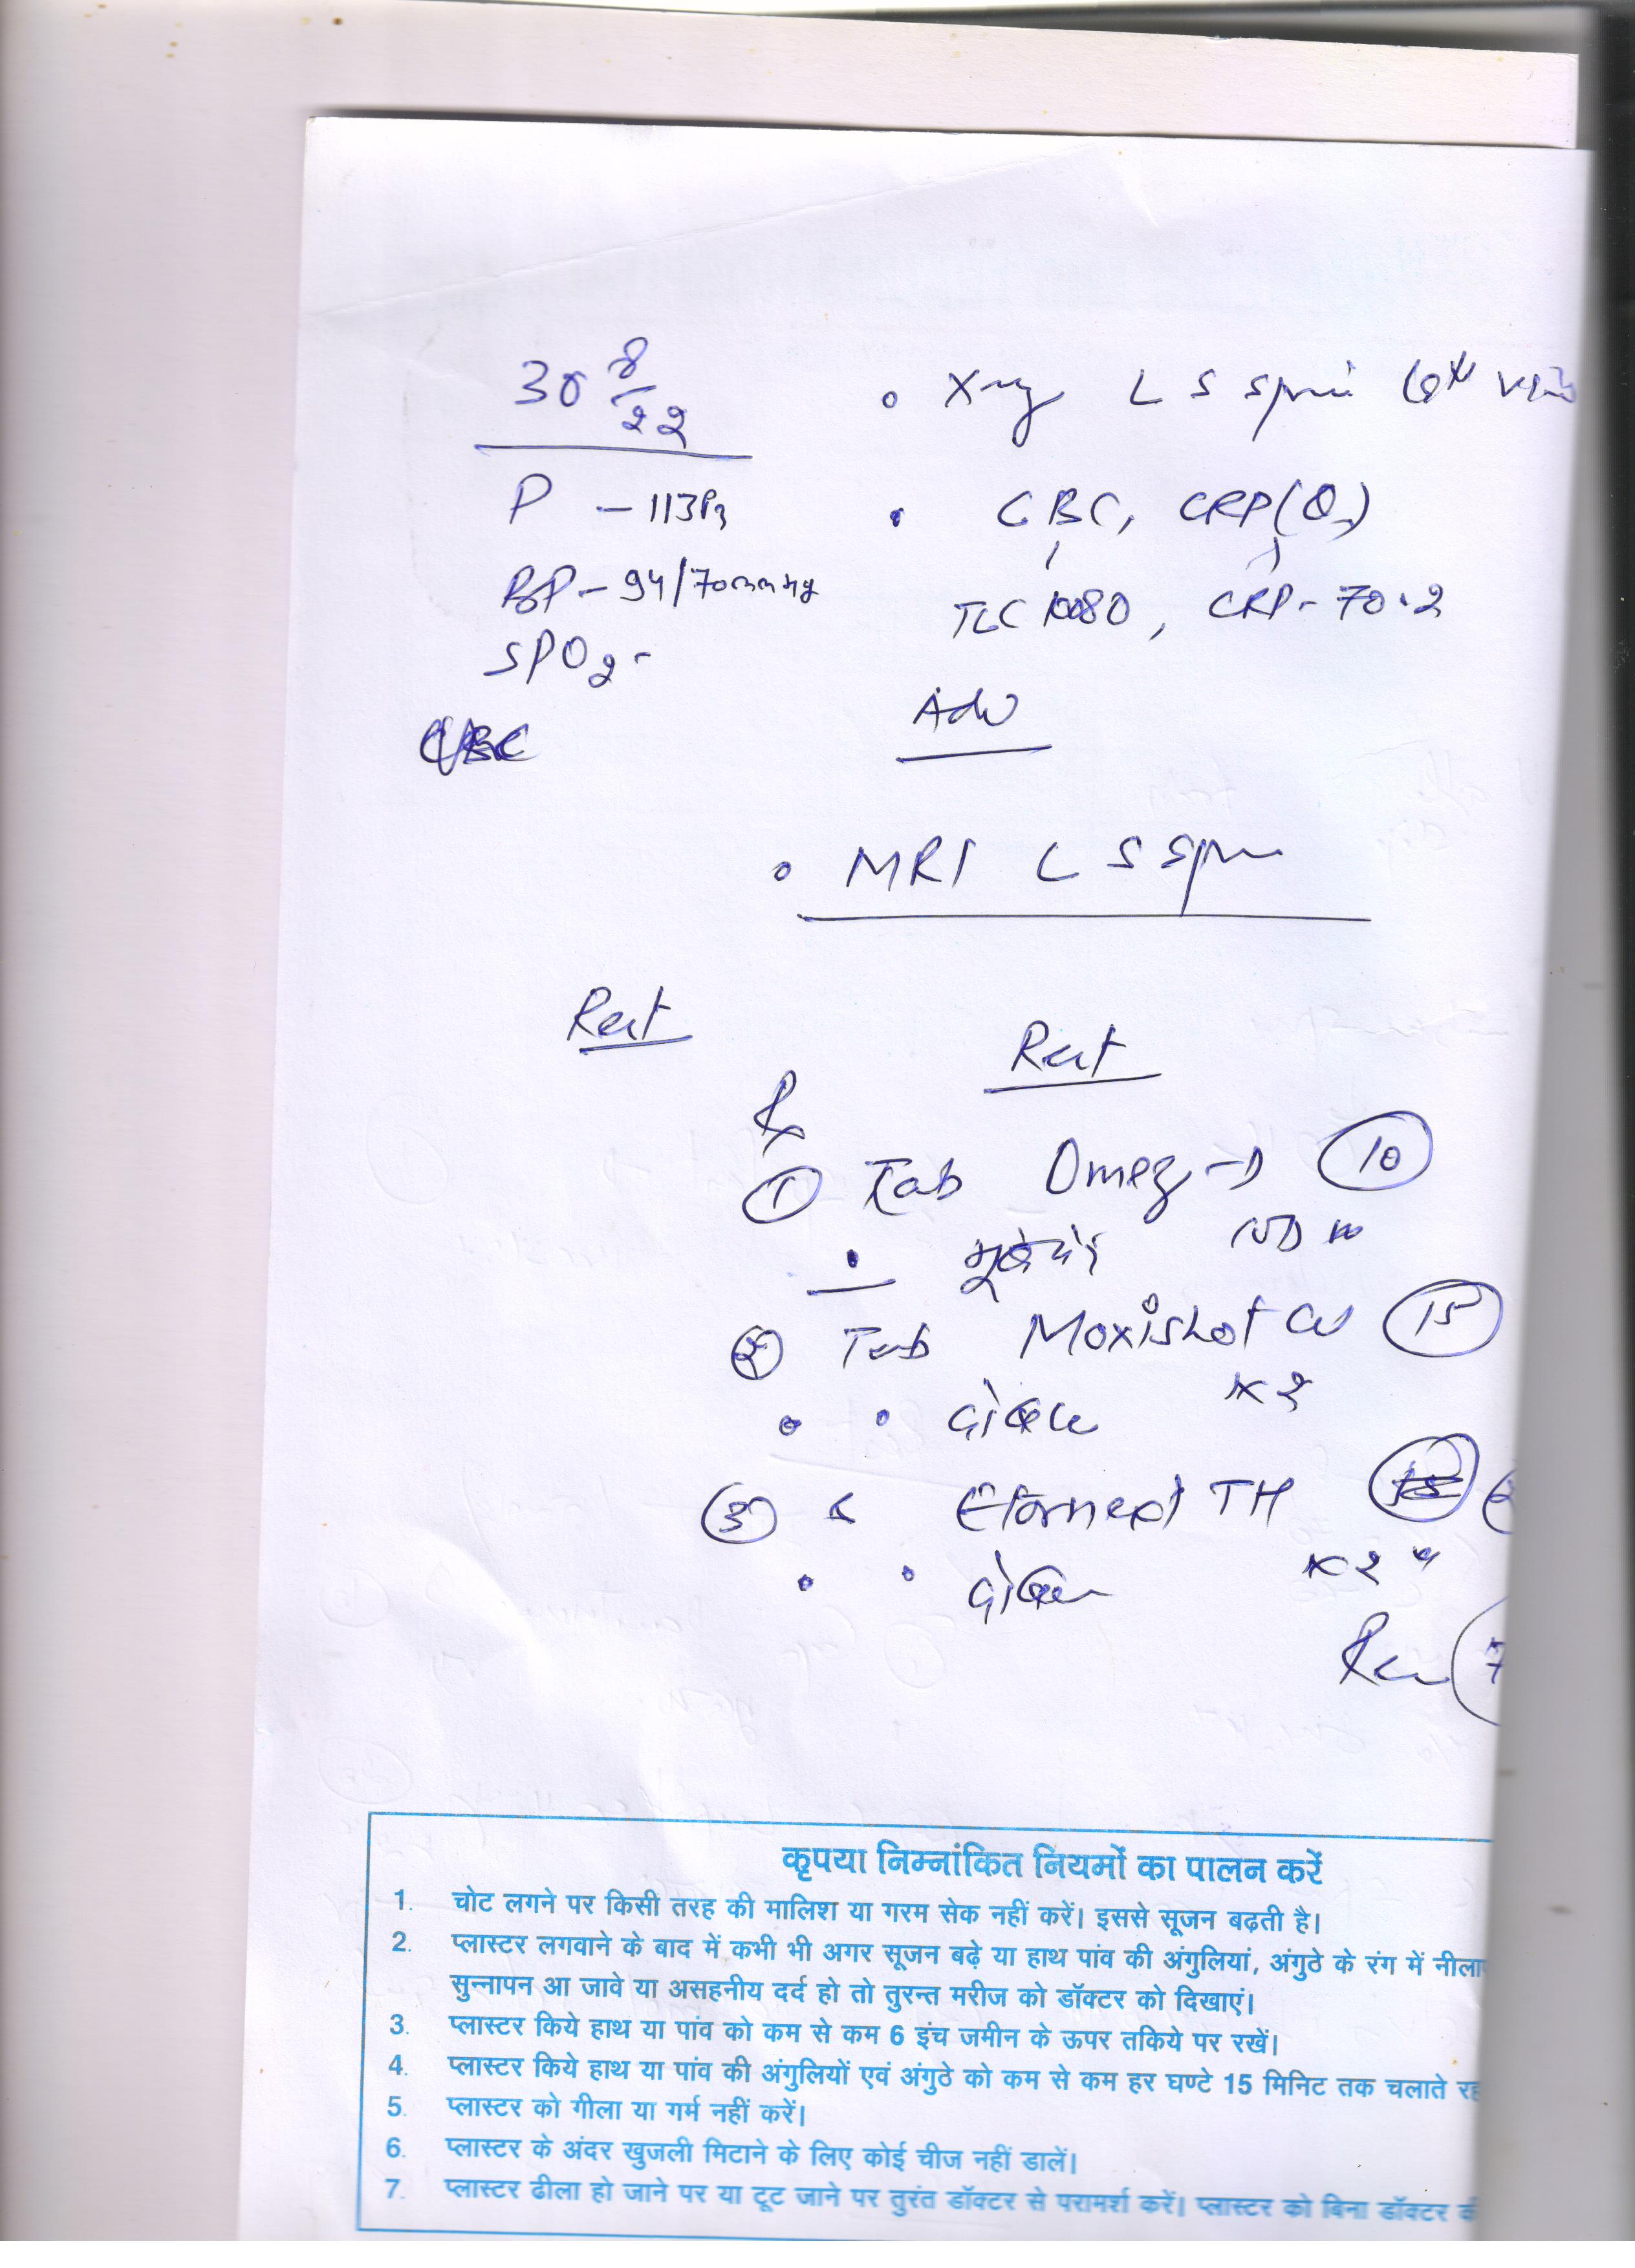 30 8/22
• Xray L S spine Lat view
P - 113
• CBC, CRP(Q)
BP - 94/70mmHg
TLC 10080, CRP - 70.2
SPO2 -
CBC
Adv
• MRI L S spine
Rest
Rest
Rx
① Tab Omez-D 10
• भूखे पेट
② Tab Moxishot CV 15
• • x2
③ " TH 15
• • x2 "
7
कृपया निम्नांकित नियमों का पालन करें
1. चोट लगने पर किसी तरह की मालिश या गरम सेक नहीं करें। इससे सूजन बढ़ती है।
2. प्लास्टर लगवाने के बाद में कभी भी अगर सूजन बढ़े या हाथ पांव की अंगुलियां, अंगुठे के रंग में नीला
सुन्नापन आ जावे या असहनीय दर्द हो तो तुरन्त मरीज को डॉक्टर को दिखाएं।
3. प्लास्टर किये हाथ या पांव को कम से कम 6 इंच जमीन के ऊपर तकिये पर रखें।
4. प्लास्टर किये हाथ या पांव की अंगुलियों एवं अंगुठे को कम से कम हर घण्टे 15 मिनिट तक चलाते रह
5. प्लास्टर को गीला या गर्म नहीं करें।
6. प्लास्टर के अंदर खुजली मिटाने के लिए कोई चीज नहीं डालें।
7. प्लास्टर ढीला हो जाने पर या टूट जाने पर तुरंत डॉक्टर से परामर्श करें। प्लास्टर को बिना डॉक्टर की